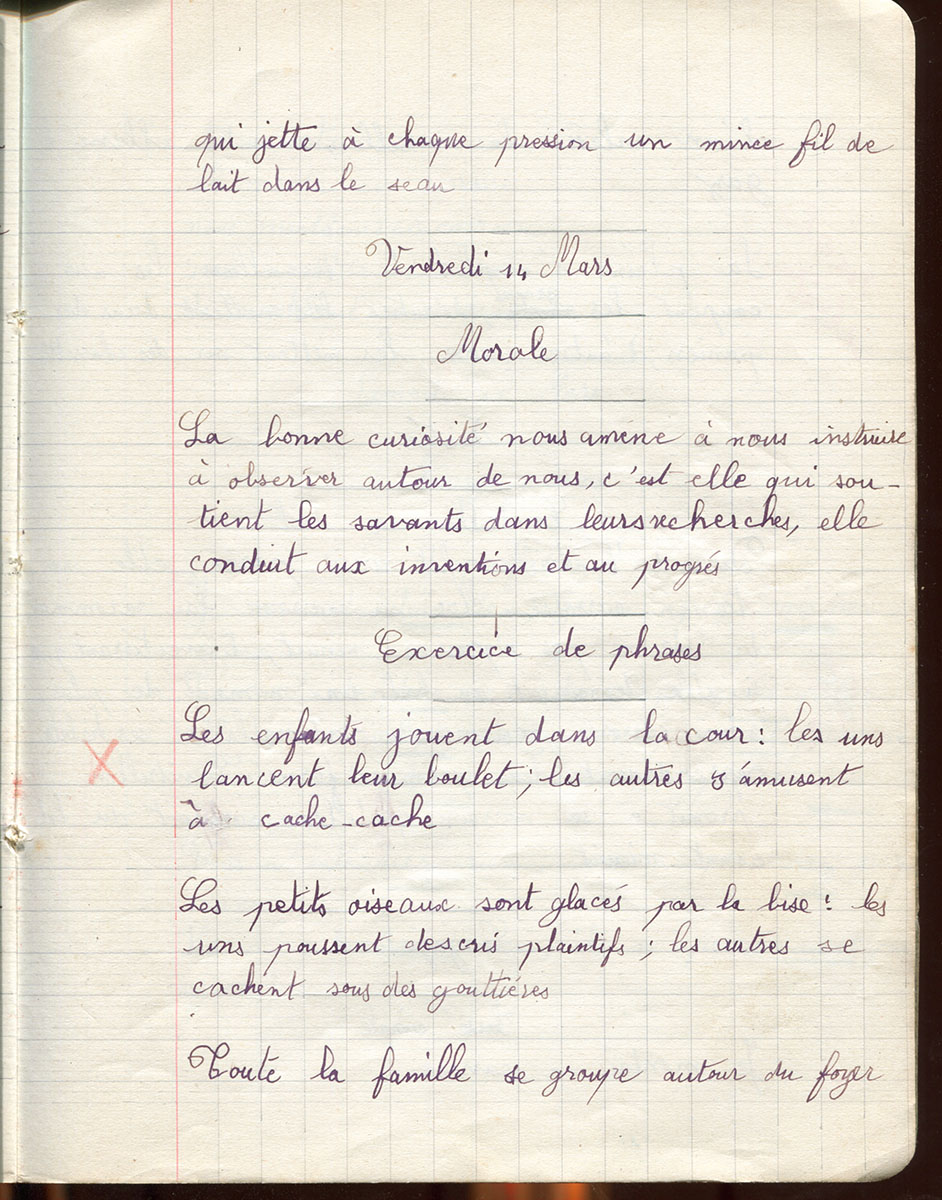 qui jette à chaque pression un mince fil de
lait dans le seau
Vendredi 14 Mars
Morale
La bonne curiosité nous amène à nous instruire
à observer autour de nous, c'est elle qui sou-
tient les savants dans leurs recherches, elle
conduit aux inventions et au progrés
Exercice de phrases
Les enfants jouent dans la cour : les uns
X lancent leur boulet ; les autres s'amusent
à cache-cache
Les petits oiseaux sont glacés par la bise : les
uns poussent des cris plaintifs ; les autres se
cachent sous des gouttiéres
Toute la famille se groupe autour du foyer